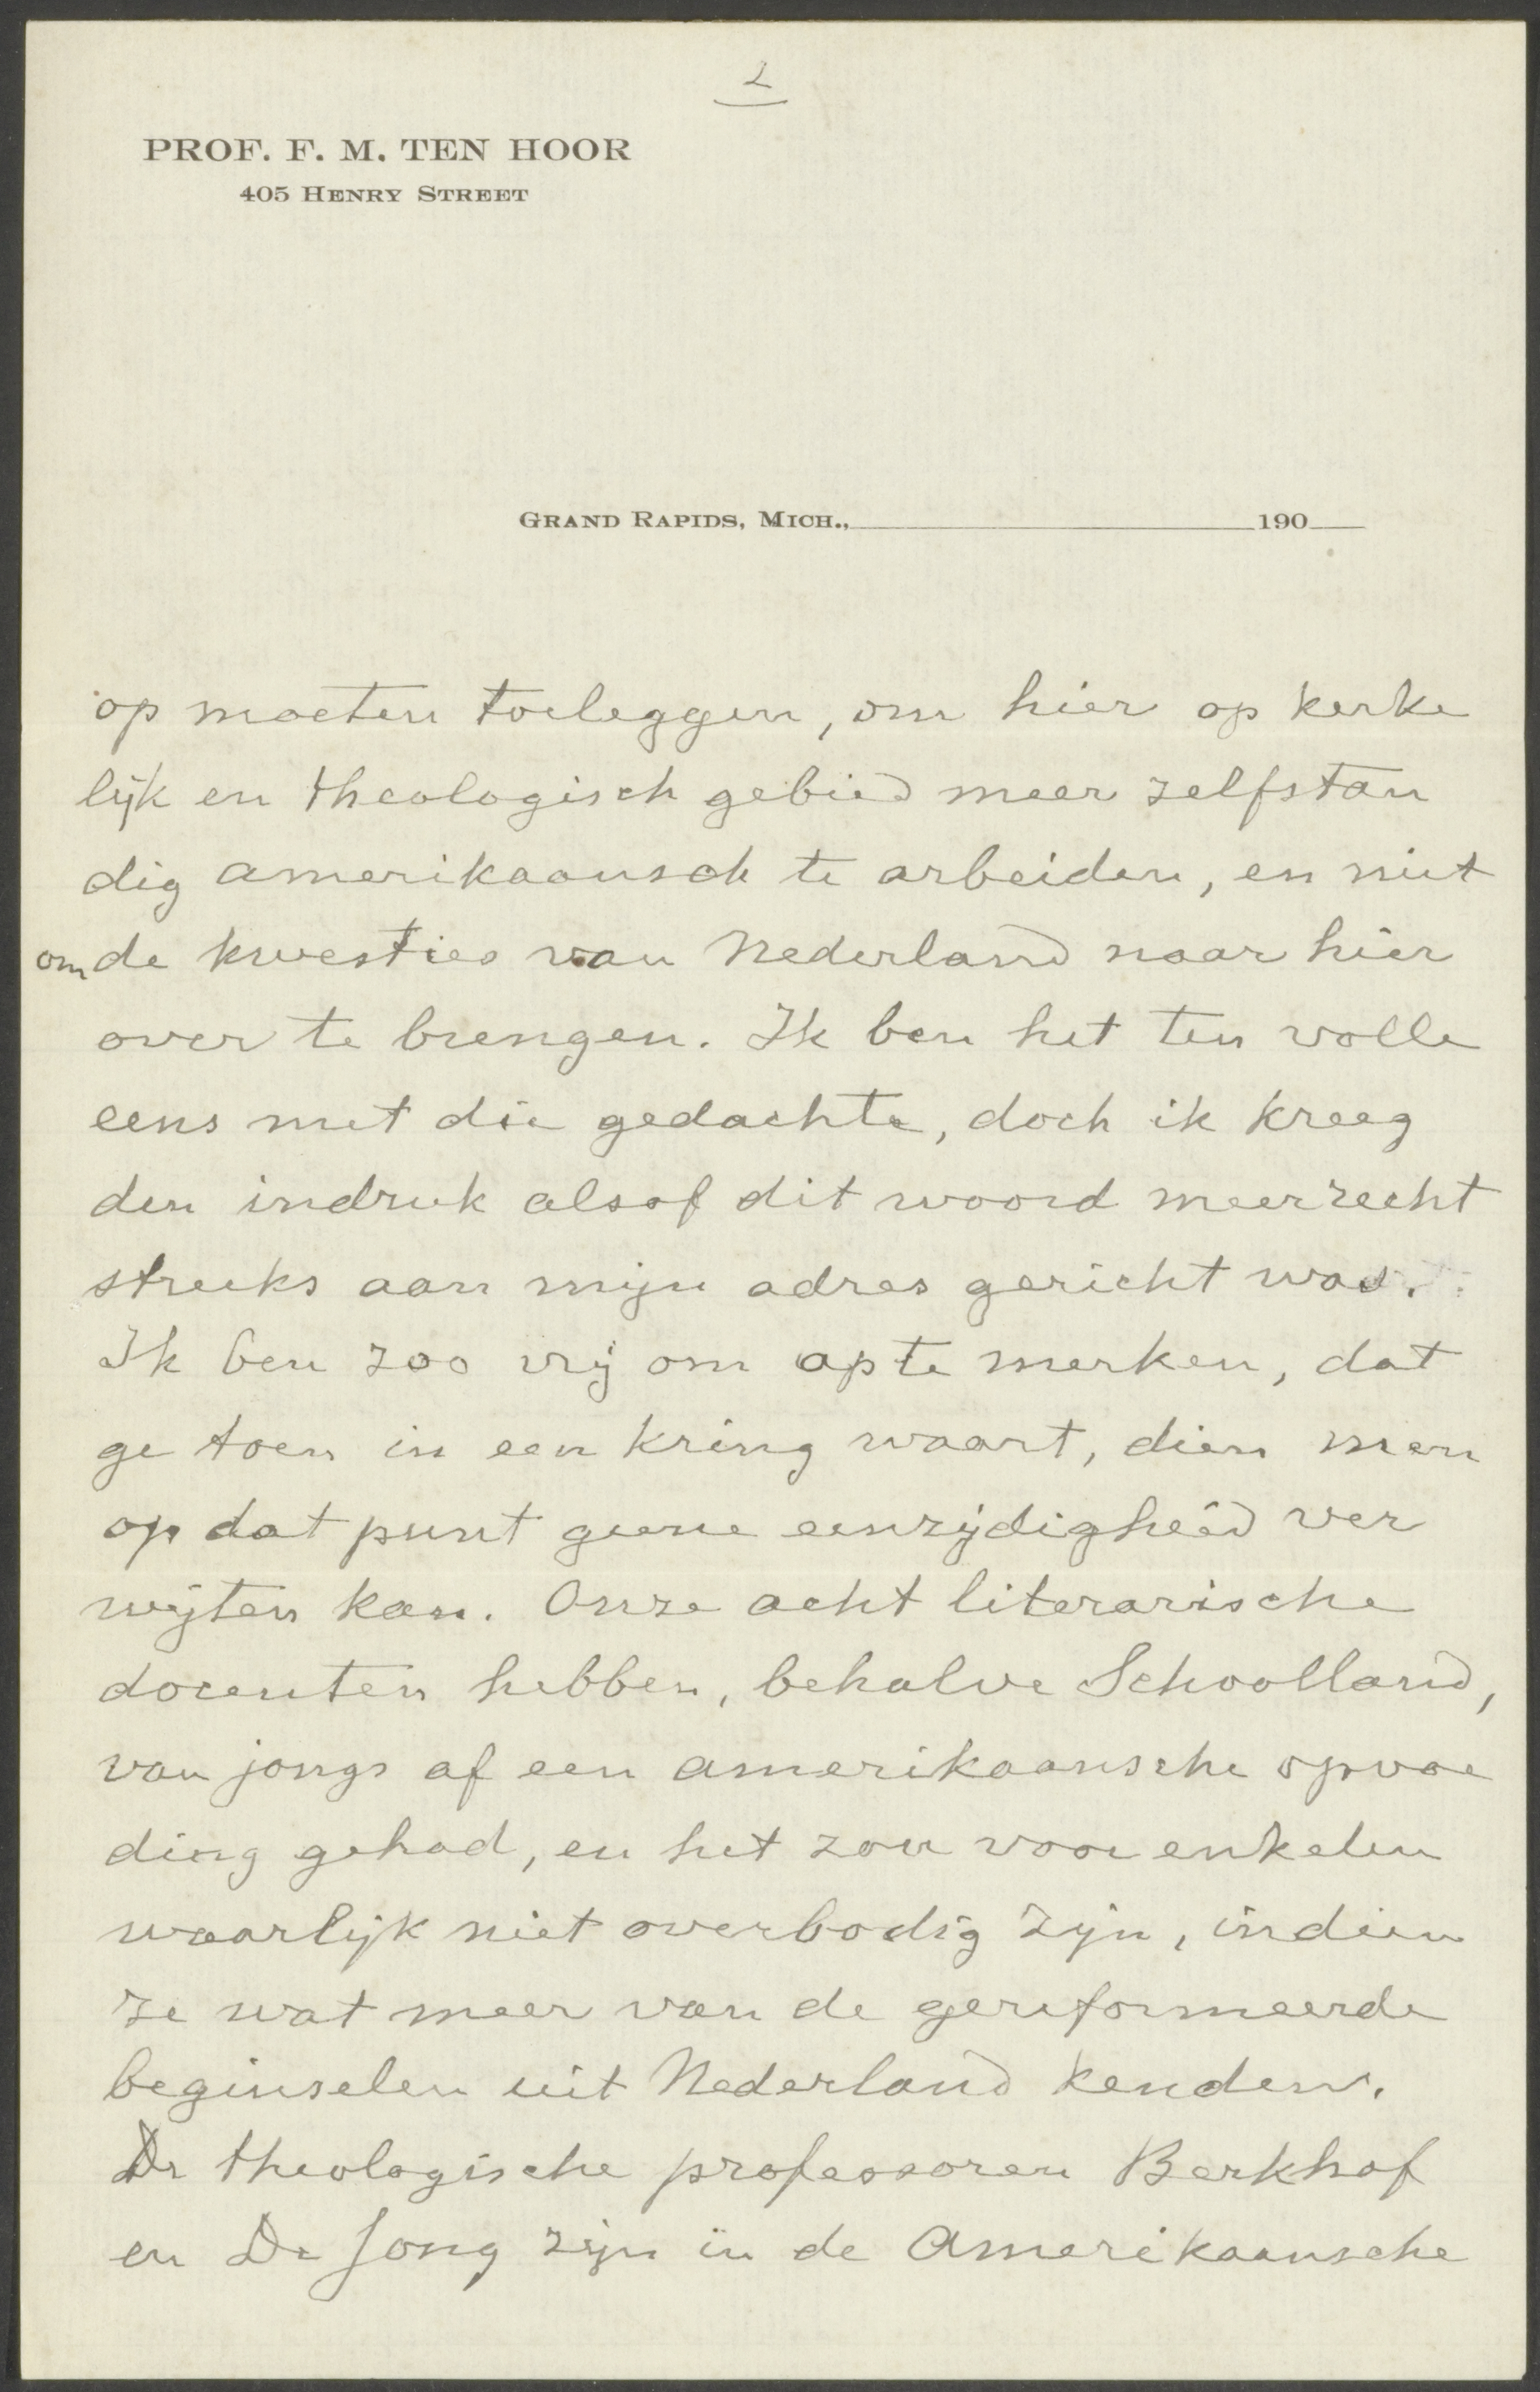 2
PROF. F. M. TEN HOOR
405 HENRY STREET
GRAND RAPIDS, MICH., 190
op moeten toeleggen, om hier op kerke
lijk en theologisch gebied meer zelfstan
dig amerikaansch te arbeiden, en niet
om de kwesties van Nederland naar hier
over te brengen. Ik ben het ten volle
eens met die gedachte, doch ik kreeg
den indruk alsof dit woord meer recht
streeks aan mijn adres gericht was.
Ik ben zoo vrij om op te merken, dat
ge toen in een kring waart, dien men
op dat punt geene eenzijdigheid ver
wijten kan. Onze acht literarische
docenten hebben, behalve Schoolland,
van jongs af een amerikaansche opvoe
ding gehad, en het zou voor enkelen
waarlijk niet overbodig zijn, indien
ze wat meer van de gereformeerde
beginselen uit Nederland kenden.
De theologische professoren Berkhof
en De Jong zijn in de Amerikaansche